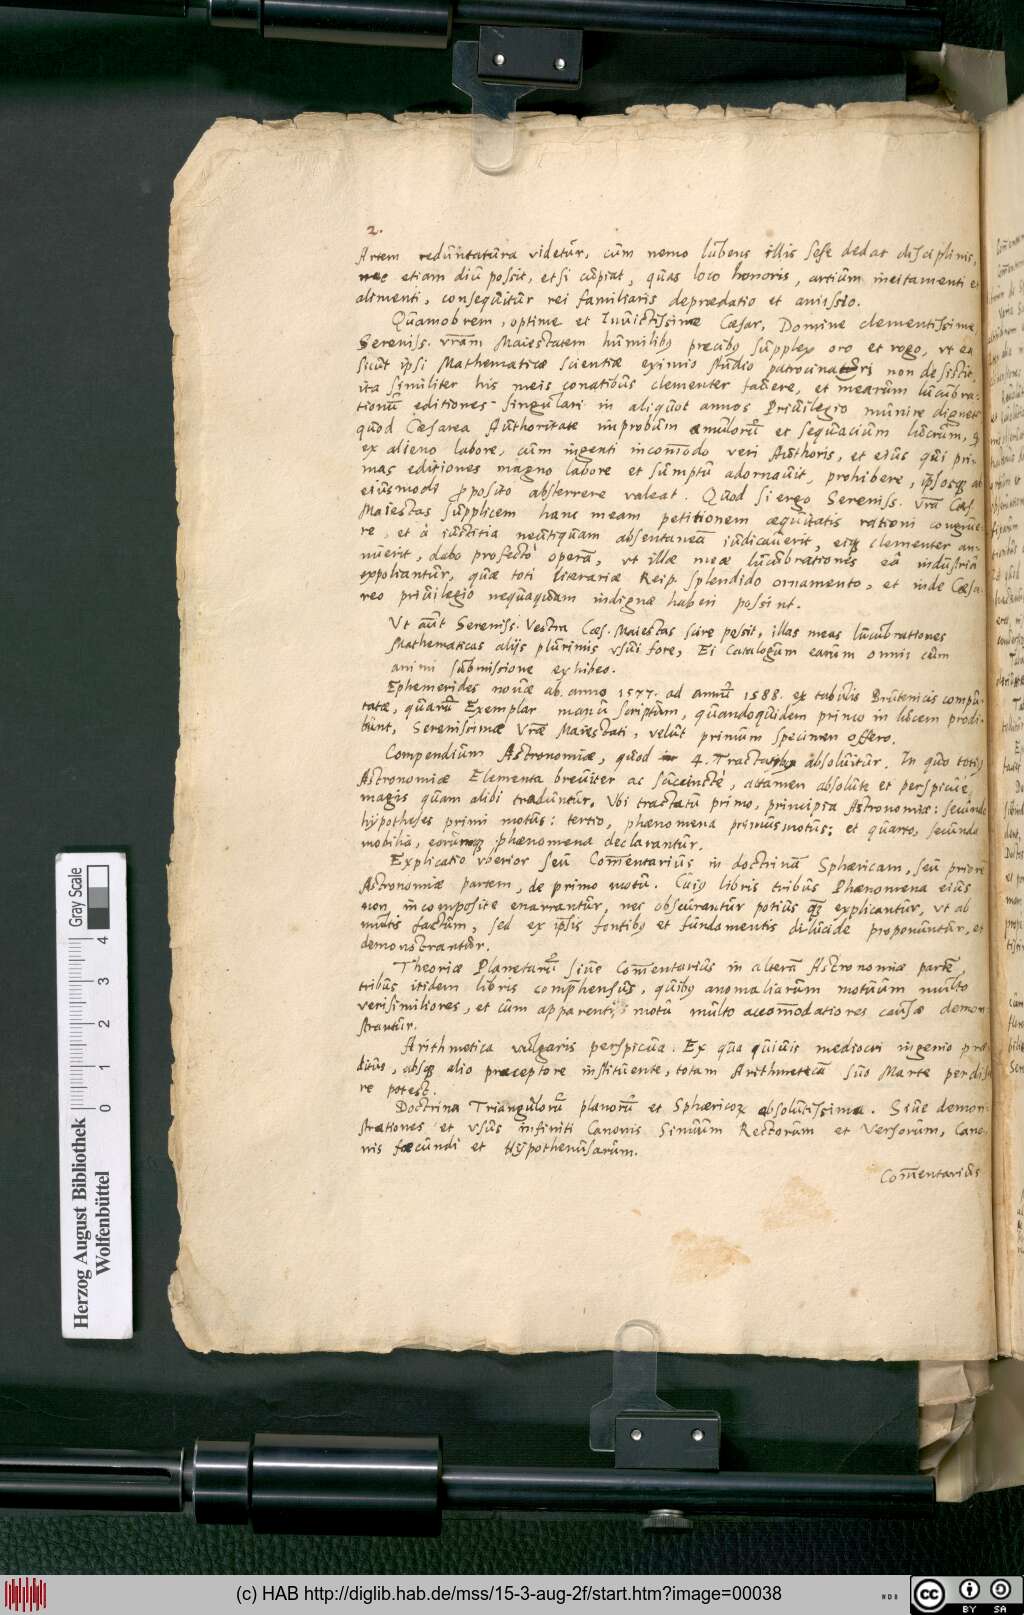 2.
Artem reduntatura videtur, cùm nemo lubens illis sese dedat disciplinis,
nec etiam diu possit, etsi cupiat, quas loco honoris, artium incitamenti et
alimenti, consequitur rei familiaris depraedatio et amissio.
Quamobrem, optime et Inuictissime Caesar, Domine clementissime,
Sereniss. vram Maiestatem humilibg precibg supplex oro et rogo, vt ea
sicut ipsi Mathematicae scientiae eximio studio patrocinatori non desistit,
ita similiter his meis conatibus clementer fauere, et mearum lucubra-
tionũ editiones singulari in aliquot annos Priuilegio munire dignet
quod Caesarea Authoritate improbum aemulorũ et sequacium lucrum,
ex alieno labore, cum ingenti incom̃odo veri Authoris, et eius qui pri-
mas editiones magno labore et sumptu adornauit, prohibere, ipsosq ab
eiusmodi proposito absterrere valeat. Quod si ergo Sereniss. vra Caes.
Maiestas supplicem hanc meam petitionem aequitatis rationi congrue-
re, et à iustitia neutiquam absentaneã iudicauerit, eiq clementer an-
nuerit, dabo profectò operã, vt illae meae lucubrationes eã industriã
expoliantur, quae toti literariae Reip. splendido ornamento, et inde Caesa-
reo priuilegio nequaquam indignae haberi possint.
Vt aũt Sereniss. Vestra Caes. Maiestas scire possit, illas meas lucubrationes
Mathematicas alijs plurimis vsui fore, Ei Catalogum earum omnis cum
animi submissione exhibeo.
Ephemerides nouae ab anno 1577. ad annũ 1588. ex tabulis Prutenicis compu-
tatae, quarũ Exemplar manu scriptum, quandoquidem primo in lucem prodi-
bunt, Serenissimae Vrae Maiestati, velut primum specimen offero.
Compendium Astronomiae, quod in 4. Tractatibg absoluitur. In quo totig
Astronomiae Elementa breuiter ac succinctè, attamen absolute et perspicue,
magis quam alibi traduntur. Vbi tractatu primo, principia Astronomiae: secundo
hypotheses primi motus: tertio, phaenomena primi motus: et quarto, secunda
mobilia, eorumq phaenomena declarantur.
Explicatio vberior seu Com̃entarius in doctrinã Sphaericam, seu priorẽ
Astronomiae partem, de primo motu. Cuig libris tribus Phaenomena eius
non incomposite enarrantur, nec obscurantur potius quã explicantur, vt ab
multis factum, sed ex ipsis fontibg et fundamentis dilucide proponuntur, et
demonstrantur.
Theoriae Planetarũ siue Com̃entarius in alterã Astronomiae partẽ
tribus itidem libris comprehensus, quibg anomaliarum motuum multo
verisimiliores, et cum apparentig motu multo accom̃odatiores causae demon-
strantur.
Arithmetica vulgaris perspicua. Ex qua quiuis mediocri ingenio prae-
ditus, absq alio praeceptore instituente, totam Arithmeticã suo Marte perdisce-
re potest.
Doctrina Triangulorũ planorũ et Sphaericorũ absolutissima. Siue demon-
strationes et vsus infiniti Canonis Sinuum Rectorum et Versorum, Cano-
nis faecundi et Hypothenusarum.
Com̃entarius
Herzog August Bibliothek
Wolfenbüttel
Gray Scale
0 1 2 3 4
(c) HAB http://diglib.hab.de/mss/15-3-aug-2f/start.htm?image=00038
WDB
cc BY SA